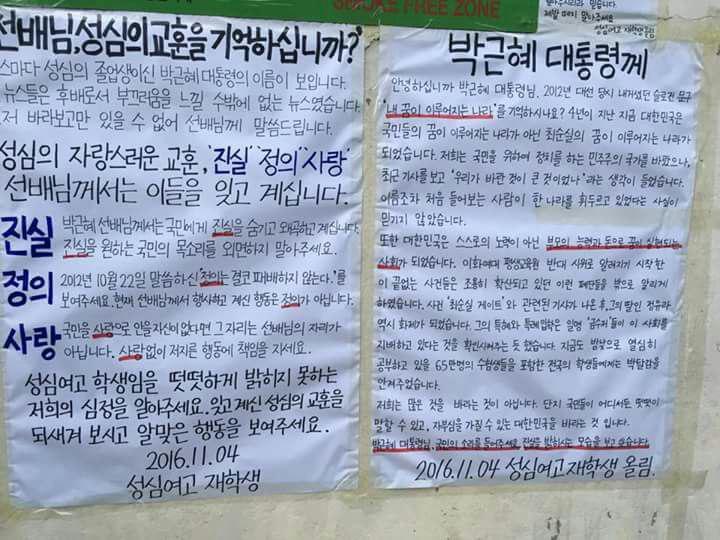 SMOKE FREE ZONE
제발 떼지 말아주세요
성심여고 재학생 올림
선배님, 성심의 교훈을 기억하십니까?
스마다 성심의 졸업생이신 박근혜 대통령의 이름이 보입니다.
뉴스들은 후배로서 부끄러움을 느낄 수밖에 없는 뉴스였습니다.
저 바라보고만 있을 수 없어 선배님께 말씀드립니다.
성심의 자랑스러운 교훈, '진실' '정의' '사랑'
선배님께서는 이들을 잊고 계십니다.
진실 박근혜 선배님께서는 국민에게 진실을 숨기고 왜곡하고 계십니다.
진실을 원하는 국민의 목소리를 외면하지 말아주세요.
정의 2012년 10월 22일 말씀하신 '정의는 결코 패배하지 않는다.'를
보여주세요. 현재 선배님께서 행사하고 계신 행동은 정의가 아닙니다.
사랑 국민을 사랑으로 안을 자신이 없다면 그 자리는 선배님의 자리가
아닙니다. 사랑없이 저지른 행동에 책임을 지세요.
성심여고 학생임을 떳떳하게 밝히지 못하는
저희의 심정을 알아주세요. 잊고 계신 성심의 교훈을
되새겨 보시고 알맞은 행동을 보여주세요.
2016.11.04
성심여고 재학생
박근혜 대통령께
안녕하십니까 박근혜 대통령님, 2012년 대선 당시 내거셨던 슬로건 문구
'내 꿈이 이루어지는 나라'를 기억하시나요? 4년이 지난 지금 대한민국은
국민들의 꿈이 이루어지는 나라가 아닌 최순실의 꿈이 이루어지는 나라가
되었습니다. 저희는 국민을 위하여 정치를 하는 민주주의 국가를 바랐으나,
최근 기사를 보고 '우리가 바란 것이 큰 것이었나'라는 생각이 들었습니다.
이름조차 처음 들어보는 사람이 한 나라를 휘두르고 있었다는 사실이
믿기지 않았습니다.
또한 대한민국은 스스로의 노력이 아닌 부모의 능력과 돈으로 꿈이 실현되는
사회가 되었습니다. 이화여대 평생교육원 반대 시위로 알려지기 시작한
이 끝없는 사건들은 조용히 확산되고 있던 이런 폐단들을 밖으로 알리게
하였습니다. 사건 '최순실 게이트'와 관련된 기사가 나온 후, 그의 딸인 정유라
역시 화제가 되었습니다. 그의 특혜와 특례입학은 일명 '금수저'들이 이 사회를
지배하고 있다는 것을 확인시켜주는 듯 했습니다. 지금도 밤낮으로 열심히
공부하고 있을 65만명의 수험생들을 포함한 전국의 학생들에게는 박탈감을
안겨주었습니다.
저희는 많은 것을 바라는 것이 아닙니다. 단지 국민들이 어디서든 떳떳이
말할 수 있고, 자부심을 가질 수 있는 대한민국을 바라는 것 입니다.
박근혜 대통령님, 국민의 소리를 들어주세요. 진실을 밝히시는 모습을 보고 싶습니다.
2016.11.04 성심여고 재학생 올림.